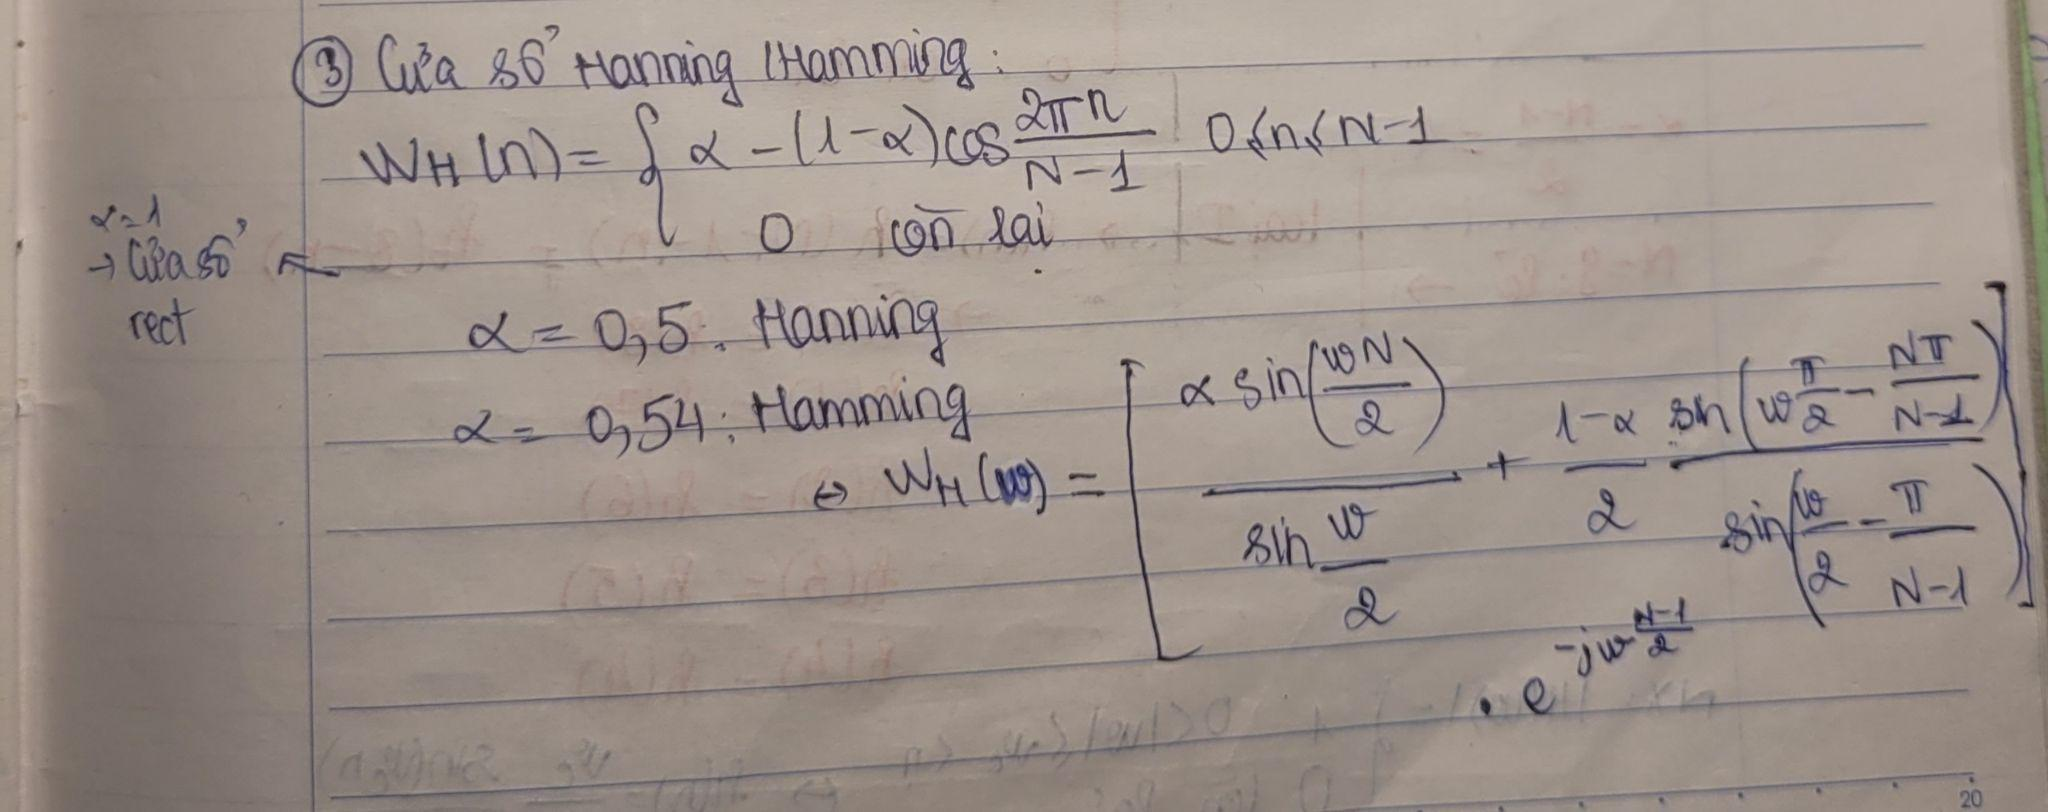 ③ Cửa sổ Hanning /Hamming:
W_H(n) = { α - (1-α)cos 2πn/(N-1) 0≤n≤N-1
0 còn lại
α=1
→ Cửa sổ
rect
α = 0,5: Hanning
α = 0,54: Hamming
⇔ W_H(w) = [ α sin(wN/2) / sin w/2 + (1-α)/2 sin(w π/2 - Nπ/(N-1)) / sin(w/2 - π/(N-1)) ]
. e^{-jw (N-1)/2}
20